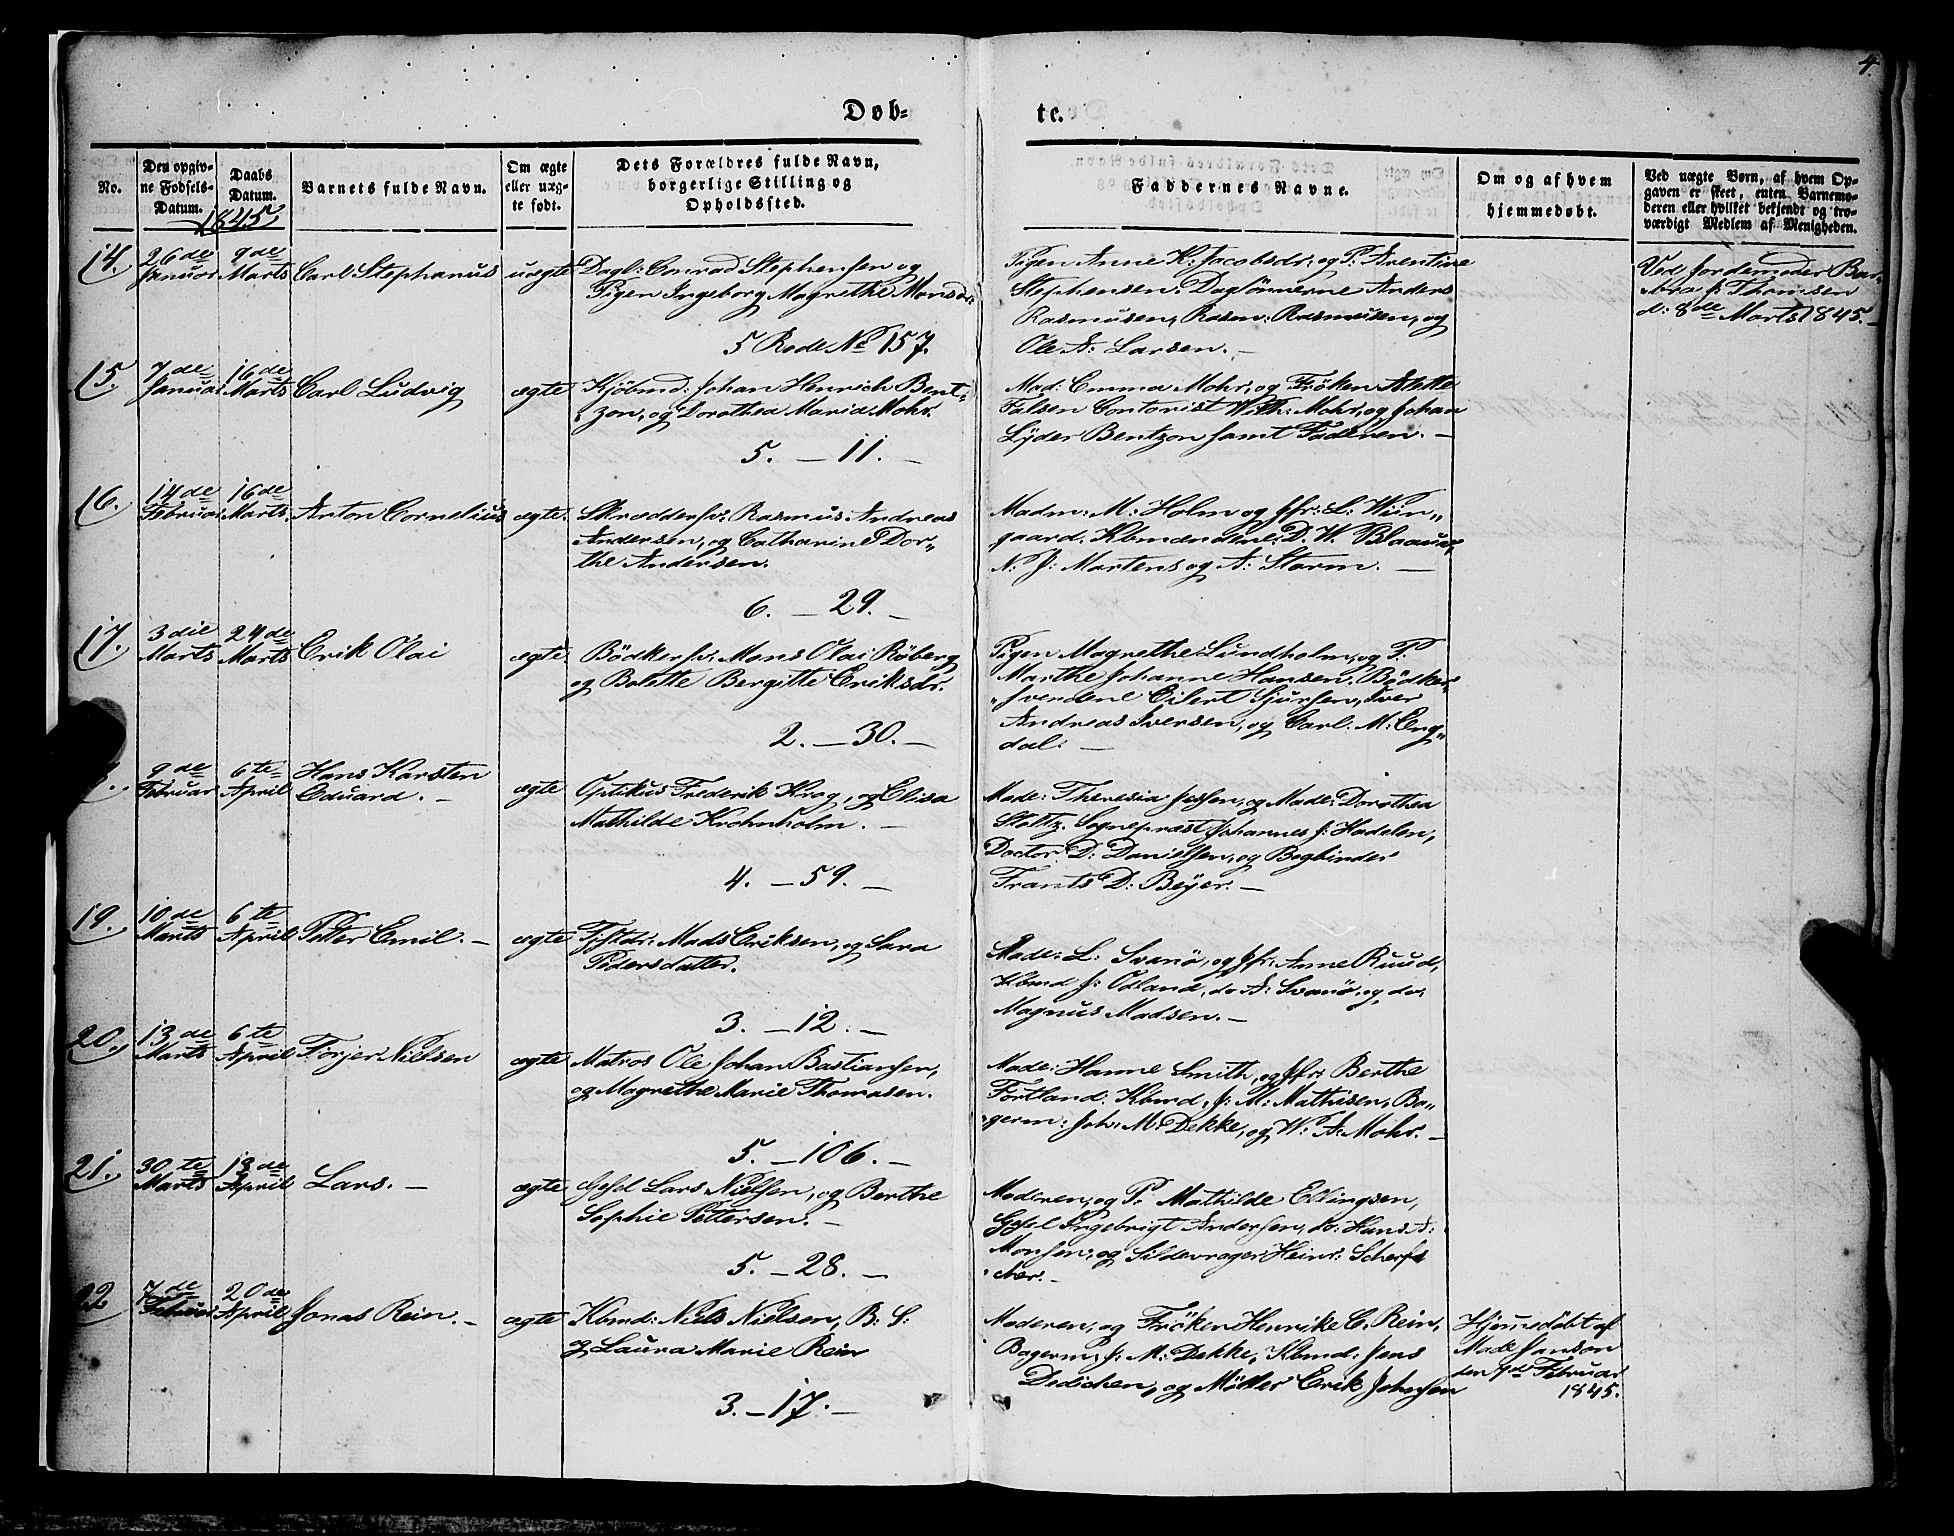 4.
Døb-
te.
No.
Den opgiv-
ne Fødsels-
Datum.
Daabs
Datum.
1845
Barnets fulde Navn.
Om ægte
eller uæg-
te født.
Dets Forældres fulde Navn,
borgerlige Stilling og
Opholdssted.
Faddernes Navne.
Om og af hvem
hjemmedøbt.
Ved uægte Børn, af hvem Op-
gaven er skeet, enten Barnemo-
deren eller hvilket bekjendt og tro-
værdigt Medlem af Menigheden.
14.
26de
Januar
9de
Marts
Carl Stephanus
uægte
Dagl: Conrad Stephensen og
Pigen Ingeborg Magrethe Monsdr:
5 Rode No 157.
Pigen Anne K: Jacobsdr: og P: Arentine
Stephensen. Dagsønnerne Anders
Rasmusen, Rasm: Rasmusen, og
Ole A: Larsen. –
Ved Jordemoder Bar-
bra J: Thomsen
d: 8de Marts 1845. –
15.
7de
Januar
16de
Marts
Carl Ludvig
ægte
Kjöbmd: Johan Henrich Bent-
zon, og Dorothea Maria Mohr.
5. – 11. –
Mad: Emma Mohr, og Frøken Alette
Falsen Contorist Wilh: Mohr, og Johan
Lyder Bentzon samt Faderen. –
16.
14de
Februar
16de
Marts.
Anton Cornelius
ægte.
Skræddersv: Rasmus Andreas
Andersen, og Catharine Dor-
the Andersen.
6. – 29. –
Madm: M: Holm og Jfr: L: Wiin-
gaard. Kbmændene D. W. Blaauw,
N: J: Martens og A: Storm. –
17.
3die
Marts
24de
Marts
Erik Olai
ægte
Bödkersv: Mons Olai Röberg
og Bolette Bergitte Eriksdr.
2. – 30. –
Pigen Magrethe Lundholm, og P.
Marthe Johanne Hansen. Bödker-
svendene Eilert Sjursen, Iver
Andreas Iversen, og Carl. M: Eng-
dal. –
9de
Februar
6te
April
Hans Karsten
Eduard. –
ægte
Optikus Frederik Krag, og Elisa
Mathilde Krohnholm. –
4. – 59. –
Made: Theresia Jessen, og Made: Dorothea
Stoltz. Sognepræst Johannes J: Hadelen,
Doctor D: Danielsen, og Bogbinder
Frants D: Beyer. –
19.
10de
Marts
6te
April
Petter Emil. –
ægte
Mads Eriksen, og Sara
Pedersdatter.
3. – 12. –
Made: L: Svanø, og Jfr: Anne Ruud,
Kbmd J: Odland, do A: Svanø, og do:
Magnus Madsen. –
20.
13de
Marts
6te
April
Torjer Nielsen
ægte
Matros Ole Johan Bastiansen,
og Magrethe Marie Thomasen.
5. – 106. –
Made: Hanne Smith, og Jfr: Berthe
Fortland. Kbmd, J: M: Mathisen, Ba-
germ: Joh: M: Dekke, og W: A: Mohr. –
21.
30te
Marts
13de
April
Lars. –
ægte
Gesel Lars Nielsen, og Berthe
Sophie Pettersen. –
5. – 28. –
Moderen, og P: Mathilde Ellingsen,
Gesel Ingebrigt Andersen, do: Hans A:
Monsen, og Sildevrager Heinr: Scherf-
22
7de
Februar
20de
April
Jonas Rein. –
ægte
Kbmd: Niels Nielsen, B: S:
og Laura Marie Rein
3. – 17. –
Moderen, og Fröken Henrike C. Rein,
Bagerm: J: M: Dekke, Kbmd: Jens
Dedichen, og Möller Erik Johnsen
Hjemedöbt af
Made Janson
den 9de Februar
1845.